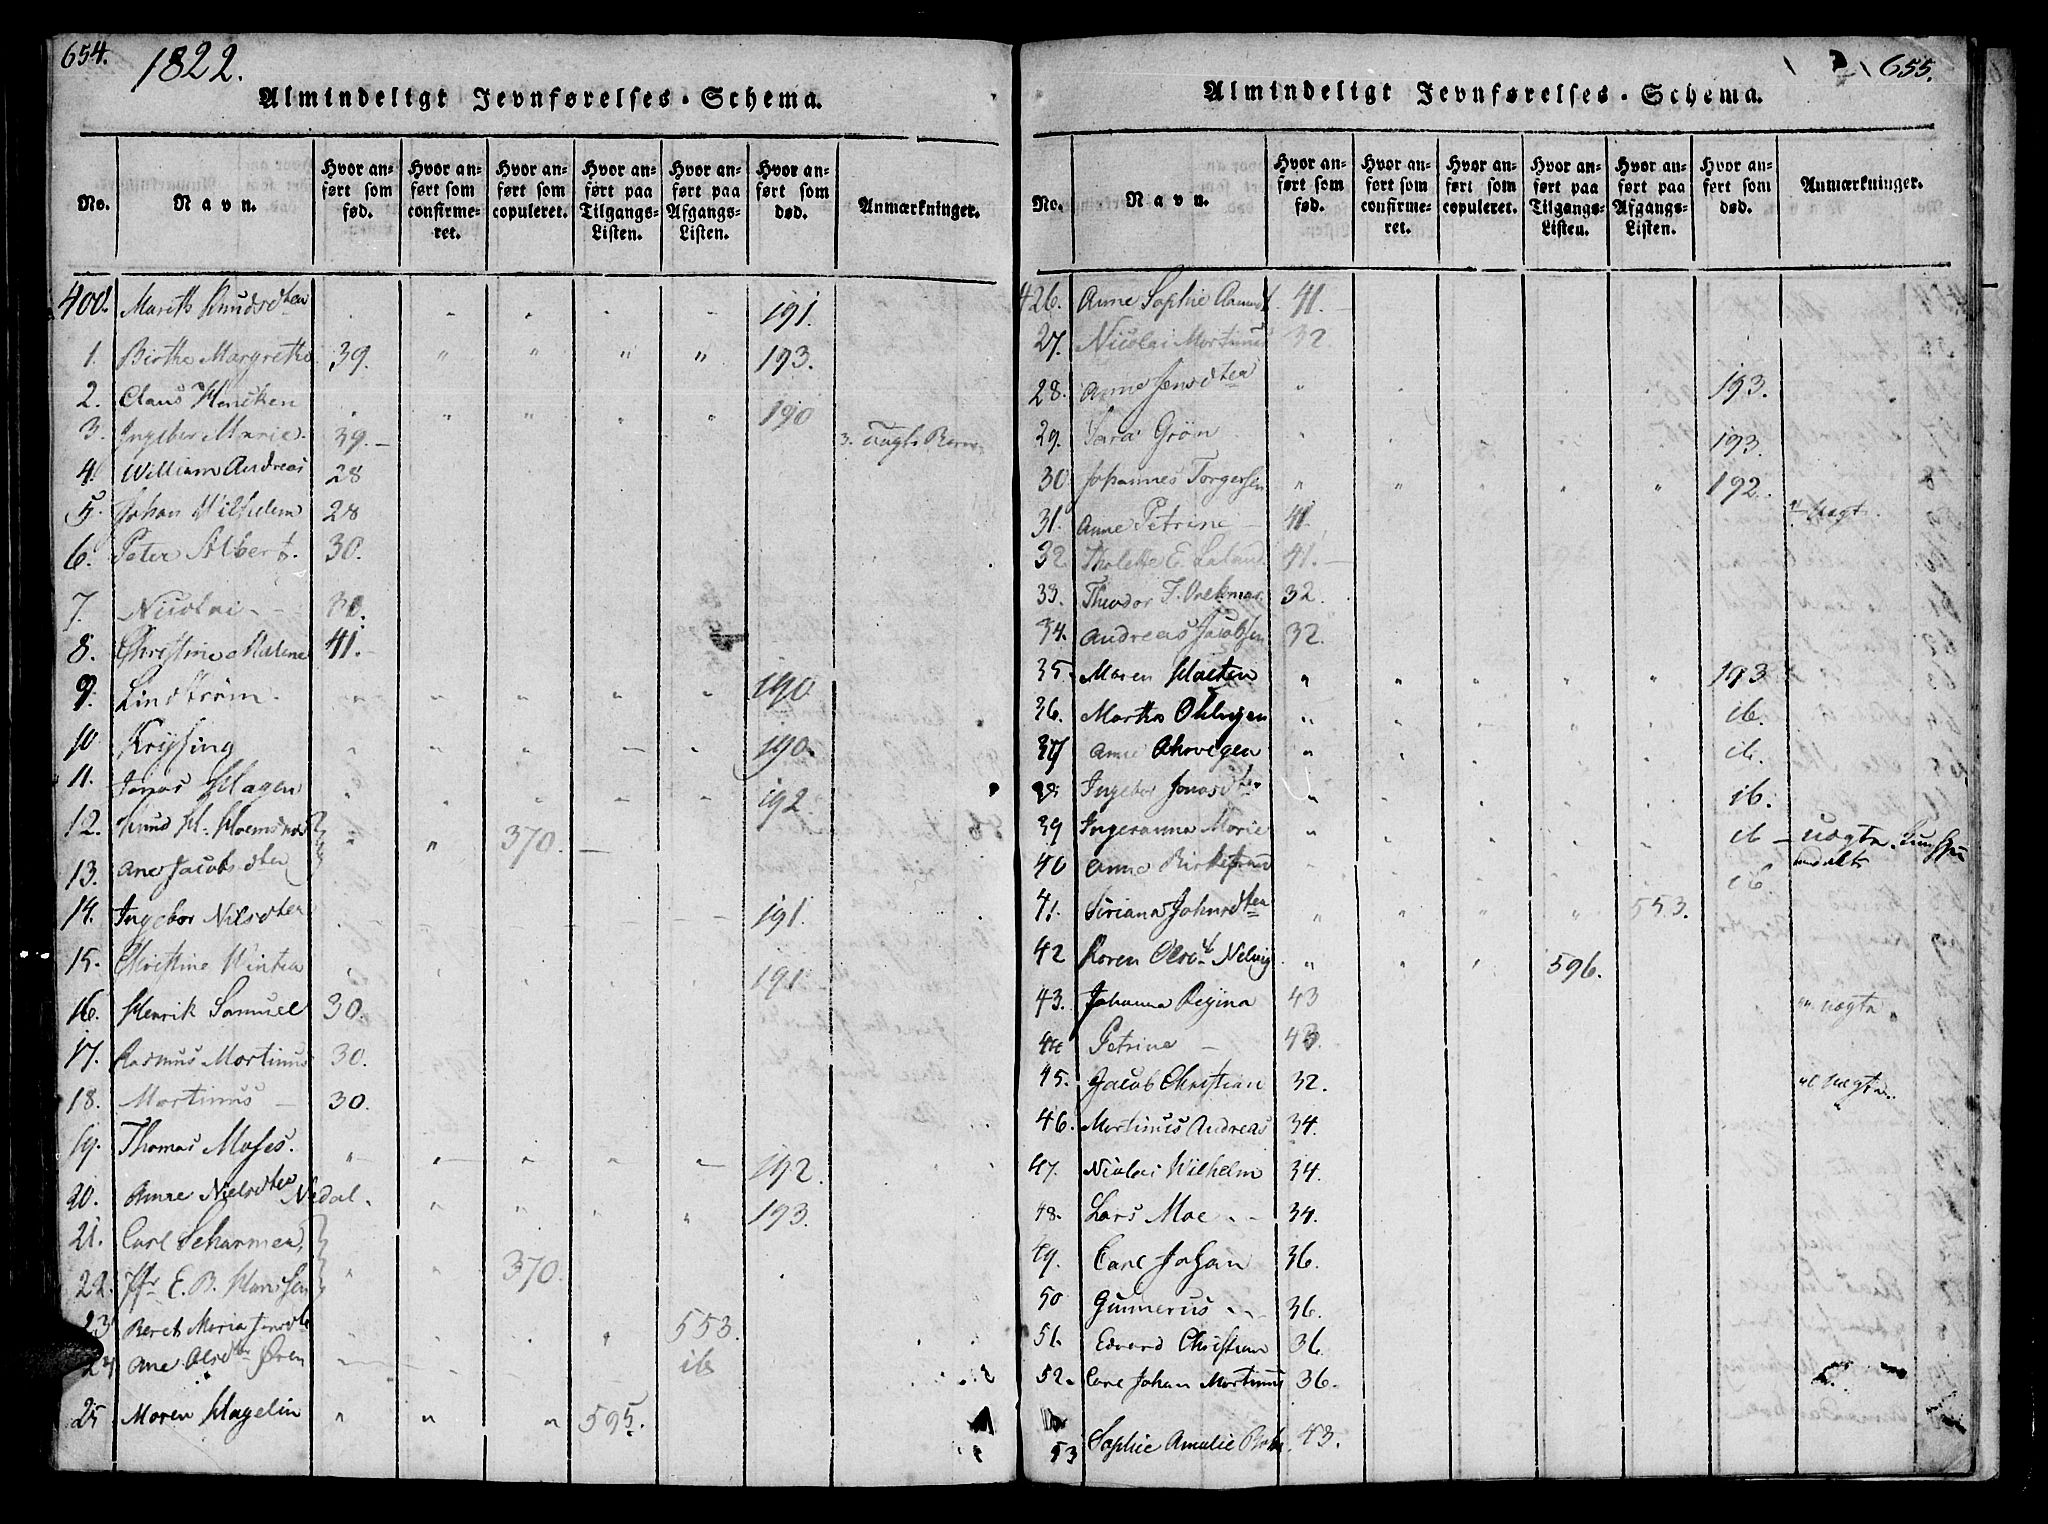 654. 1822.
Almindeligt Jevnførelses-Schema.
No.
Navn.
Hvor anført som fød.
Hvor anført som confirmeret.
Hvor anført som copuleret.
Hvor anført paa Tilgangs-Listen.
Hvor anført paa Afgangs-Listen.
Hvor anført som død.
Anmærkninger.
400. Mareth Knudsdten 191.
1. Birthe Margrethe 39. " " " " 193.
2. Claus Hencken 190
3. Ingebor Marie. 39. 3.
4. William Andreas 28
5. Johan Wilhelm 28
6. Peter Albert. 30.
7. Nicolai
8. Christine Malene 41.
9. Lindstrøm. 190
10. Krysing 190.
11. Jonas Hagen 192.
12. Knud H. 370.
13. Ane Jacobsdten
14. Ingebor Nilsdten 191.
15. Christine Winter 191
16. Henrik Samuel 30.
17. Rasmus Mortinus 30.
18. Mortinus 30.
19. Thomas Moses. 192.
20. Anne Nielsdten Nedal. 193.
21. Carl Scharmen
22. E. B. Hansen 370.
23 Beret Maria 553.
24 Ane Olsdtr Øren ib
25 Maren Hagelin " " " 595.
655.
Almindeligt Jevnførelses-Schema.
No.
Navn.
Hvor anført som fød.
Hvor anført som confirmeret.
Hvor anført som copuleret.
Hvor anført paa Tilgangs-Listen.
Hvor anført paa Afgangs-Listen.
Hvor anført som død.
Anmærkninger.
426. Anne Sophie 41.
27. Nicolai Mortinus 32.
28. Anne Jensdten 193.
29. Sara Grøn 193.
30 Johannes Torgersen 192.
31. Anne Petrine 41.
32 41.
33. Theodor F. 32.
34. Andreas Jacobsen 32.
35. Maren Holten 193
36. Martha ib.
37 Anne ib.
Ingebor Jonasdten ib.
39 Ingeranna Marie ib
40 Anne ib
41. Siriana Johnsdten 553.
42 Karen 596.
43. Johanna Regina 43
44 Petrine 43.
45. Jacob Christian 32.
46. Martinus Andreas 34.
47. Nicolai Wilhelm 34.
48. Lars Moe 34.
49. Carl Johan 36.
50 Gunnerus 36.
51. Edvard Christian 36.
52. Carl Johan Mortinus 36.
53 Sophie Amalie 43.